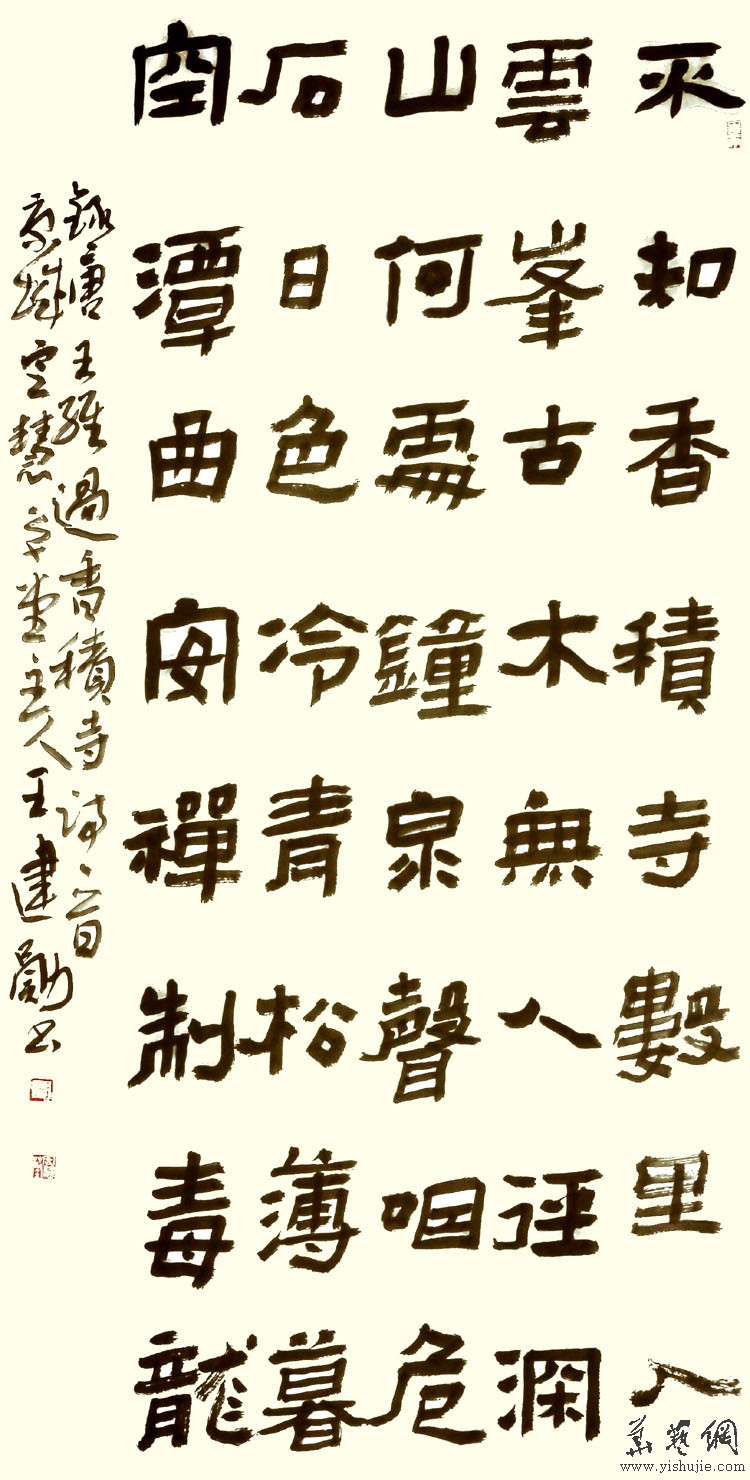 不知香積寺數里入
雲峯古木無人逕深
山何處鐘泉聲咽危
石日色冷青松薄暮
空潭曲安禪制毒龍
錄唐王維過香積寺詩一首
京城慧草堂主人王建勛書
華藝網
www.yishujie.com